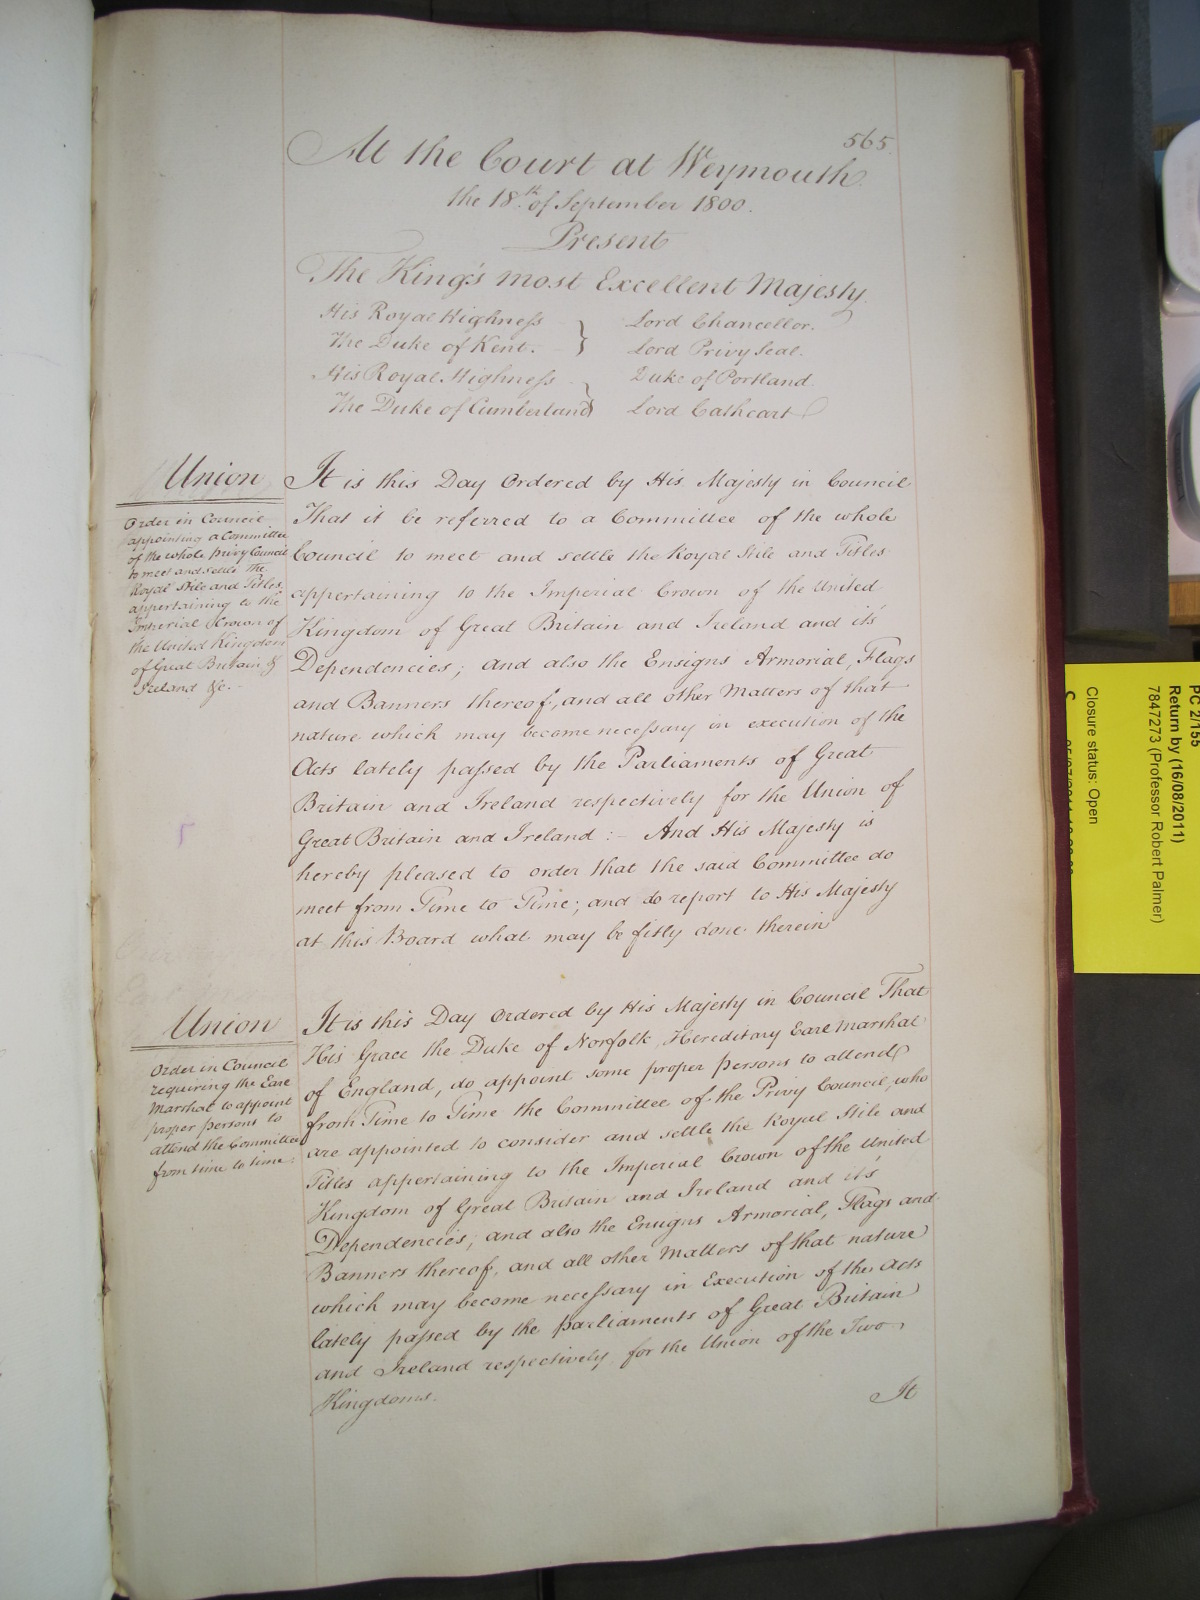 565.
At the Court at Weymouth
the 18th of September 1800.
Present
The King's most Excellent Majesty
His Royal Highness } Lord Chancellor.
The Duke of Kent. Lord Privy Seal.
His Royal Highness } Duke of Portland
The Duke of Cumberland Lord Cathcart
Union
Order in Council
appointing a Committee
of the whole Privy Council
to meet and settle the
Royal Stile and Titles
appertaining to the
Imperial Crown of
the United Kingdom
of Great Britain &
Ireland &c.
It is this Day Ordered by His Majesty in Council
That it be referred to a Committee of the whole
Council to meet and settle the Royal Stile and Titles
appertaining to the Imperial Crown of the United
Kingdom of Great Britain and Ireland and it's
Dependencies; and also the Ensigns Armorial, Flags
and Banners thereof, and all other Matters of that
nature which may become necessary in execution of the
Acts lately passed by the Parliaments of Great
Britain and Ireland respectively for the Union of
Great Britain and Ireland :- And His Majesty is
hereby pleased to order that the said Committee do
meet from Time to Time; and do report to His Majesty
at this Board what may be fitly done therein
Union
Order in Council
requiring the Earl
Marshal to appoint
proper persons to
attend the Committee
from time to time.
It is this Day Ordered by His Majesty in Council That
His Grace the Duke of Norfolk, Hereditary Earl Marshal
of England, do appoint some proper persons to attend
from Time to Time the Committee of the Privy Council, who
are appointed to consider and settle the Royal Stile and
Titles appertaining to the Imperial Crown of the United
Kingdom of Great Britain and Ireland and it's
Dependencies; and also the Ensigns Armorial, Flags and
Banners thereof, and all other Matters of that nature
which may become necessary in Execution of the Acts
lately passed by the parliaments of Great Britain
and Ireland respectively for the Union of the Two
Kingdoms.
It
PC 2/155
Return by (16/08/2011)
7847273 (Professor Robert Palmer)
Closure status: Open